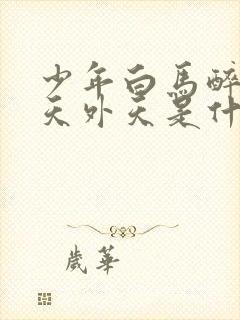 少年白馬醉
天外天是什
歲華